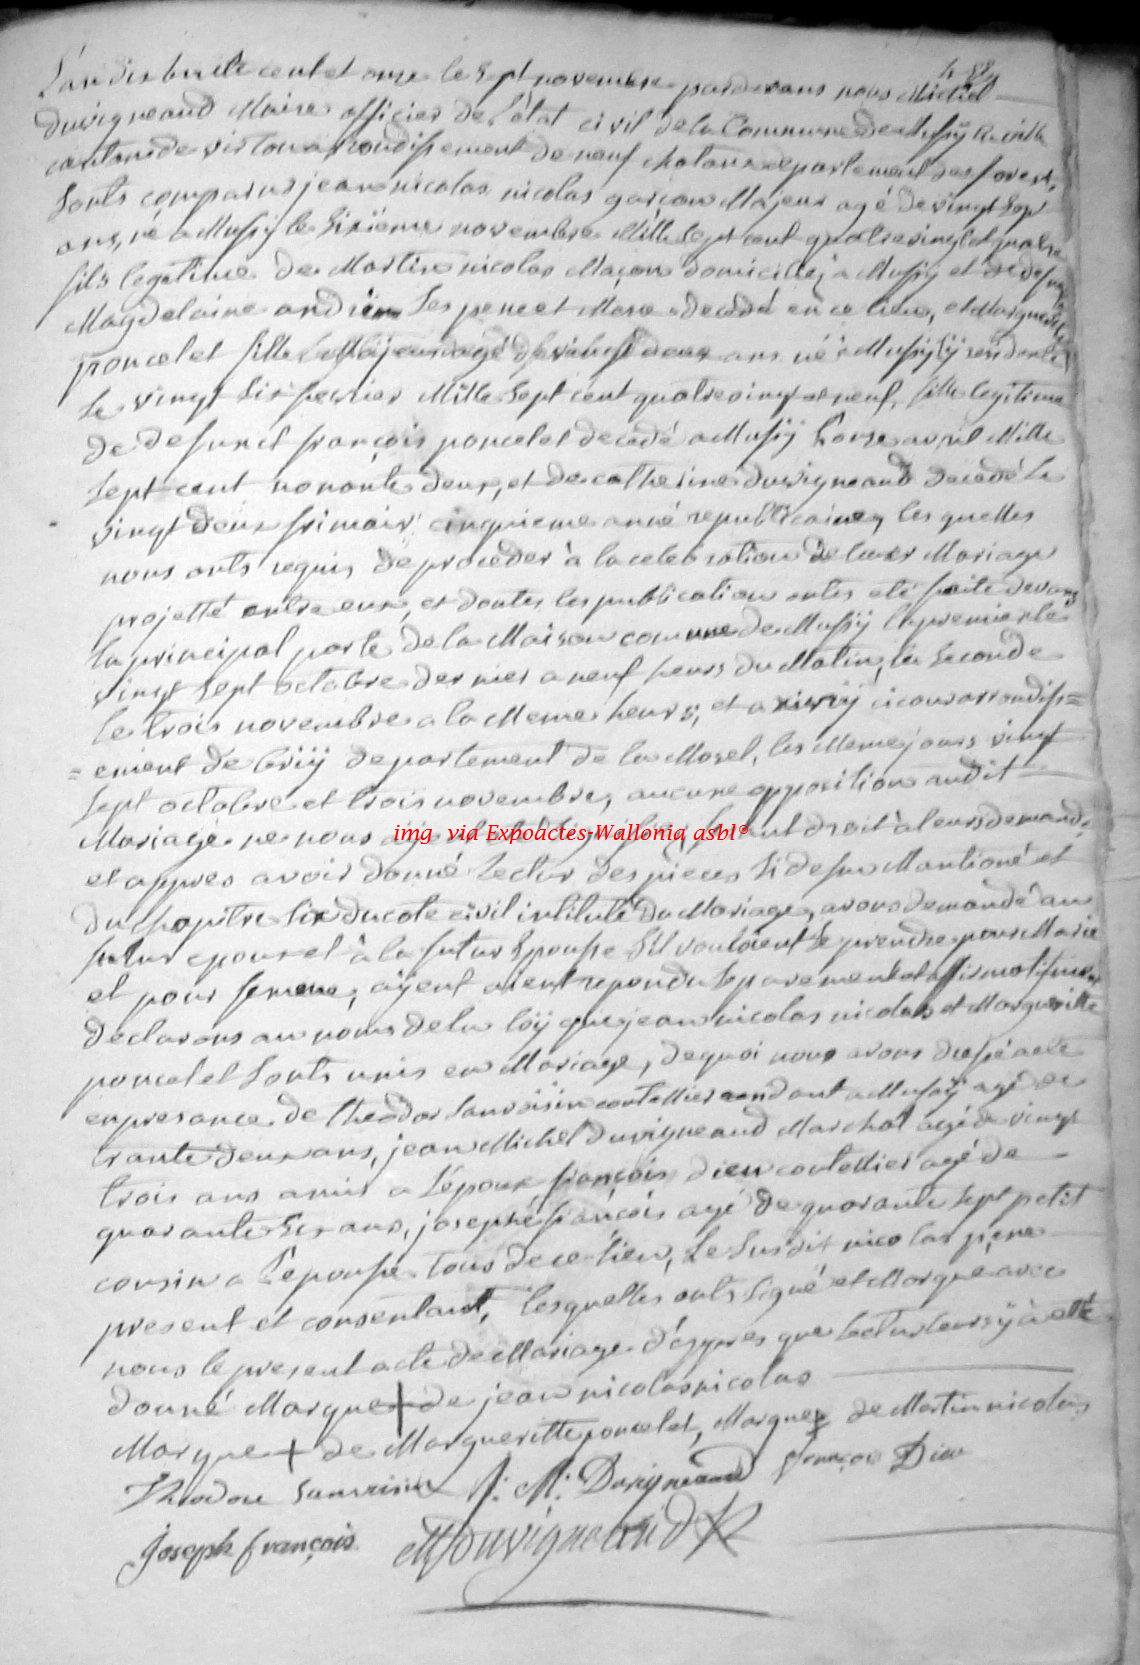 L'an dix huite cent et onze le sept novembre pardevans nous Michiel
duvigneaud Maire officier de l'état civil de la Commune de Mussÿ la ville
cantons de virton arrondissement de neuf chataux departement des forest,
sonts comparus jean nicolas nicolas garçon Majeur agé de vingt sep
ans, né a Mussÿ le sixieme novembre Mille sept cent quatrevingt et quatre
fils legitime de Martin nicolas Maçon domicilié a Mussÿ et de defunt
Magdelaine andrien ses pere et Mere decedé en ce lieu, et Marguerite
poncelet fille Majeur agé de vingt deux ans né a Mussÿ ÿ residente
le vingt six fevrier Mille sept cent quatrevingt et neuf, fille legitime
de defunct françois poncelet decedé a Mussÿ l'onze avril Mille
sept cent nonante deux, et de catherine duvigneaud decedé le
vingt deux frimair cinquieme anné republicaine, les quelles
nous onts requis de proceder à la celebration de leur Mariage
projetté entre eux, et dontes les publication ontes eté faite devans
la principal porte de la Maison commune de Mussÿ la premier le
vingt sept octobre dernier a neuf heurs du Matin, la seconde
le trois novembre a la Meme heurs, et a xivrÿ circour arrondiss=
=ement de briÿ departement de la Mosel, les Meme jours vingt
sept octobre et trois novembre, aucune opposition audit
Mariage ne nous aÿent été signifier, faisant droit à leurs demand,
et appres avoir donné Lectur des pieces si desu Mantioné et
du chapitre six du cote civil intitulé du Mariage, avons demandé au
futur epoux et à la futur Epousse s'il vouloient se prendre pour Marie
et pour femme, aÿent repondu separement et affirmatifment
declarons au noms de la loÿ que jean nicolas nicolas et Marguerite
poncelet sonts unis en Mariage, de quoi nous avons dressé acte
en presance de theodor sanvoisin coutellier rendant a Mussÿ agé de
trante deux ans, jean Michel duvigneaud Marchal agé de vingt
trois ans amis a l'époux françois dieu coutellier agé de
quarante six ans, josephe françois agé de quarante sept petit
cousin a l'epousse tous de ce lieu, le susdit nicolas pere
present et consentant, lesquelles onts signé et Marque avec
nous le present acte de Mariage d'appres que lectur leurs ÿ à etté
donné Marque + de jean nicolas nicolas
Marque + de Margueritte poncelet, Marque + de Martin nicolas
Theodore Sanvoisin J: M: Duvigneaud françois Dieu
Joseph françois MDuvigneaud
img via Expoactes-Wallonia asbl®